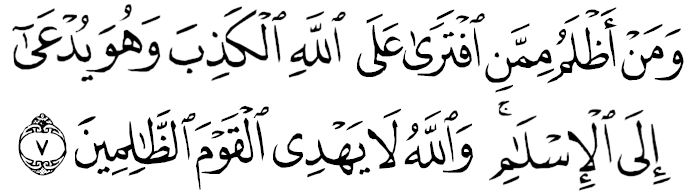 وَمَنْ أَظْلَمُ مِمَّنِ ٱفْتَرَىٰ عَلَى ٱللَّهِ ٱلْكَذِبَ وَهُوَ يُدْعَىٰٓ
إِلَى ٱلْإِسْلَـٰمِ ۚ وَٱللَّهُ لَا يَهْدِى ٱلْقَوْمَ ٱلظَّـٰلِمِينَ ٧